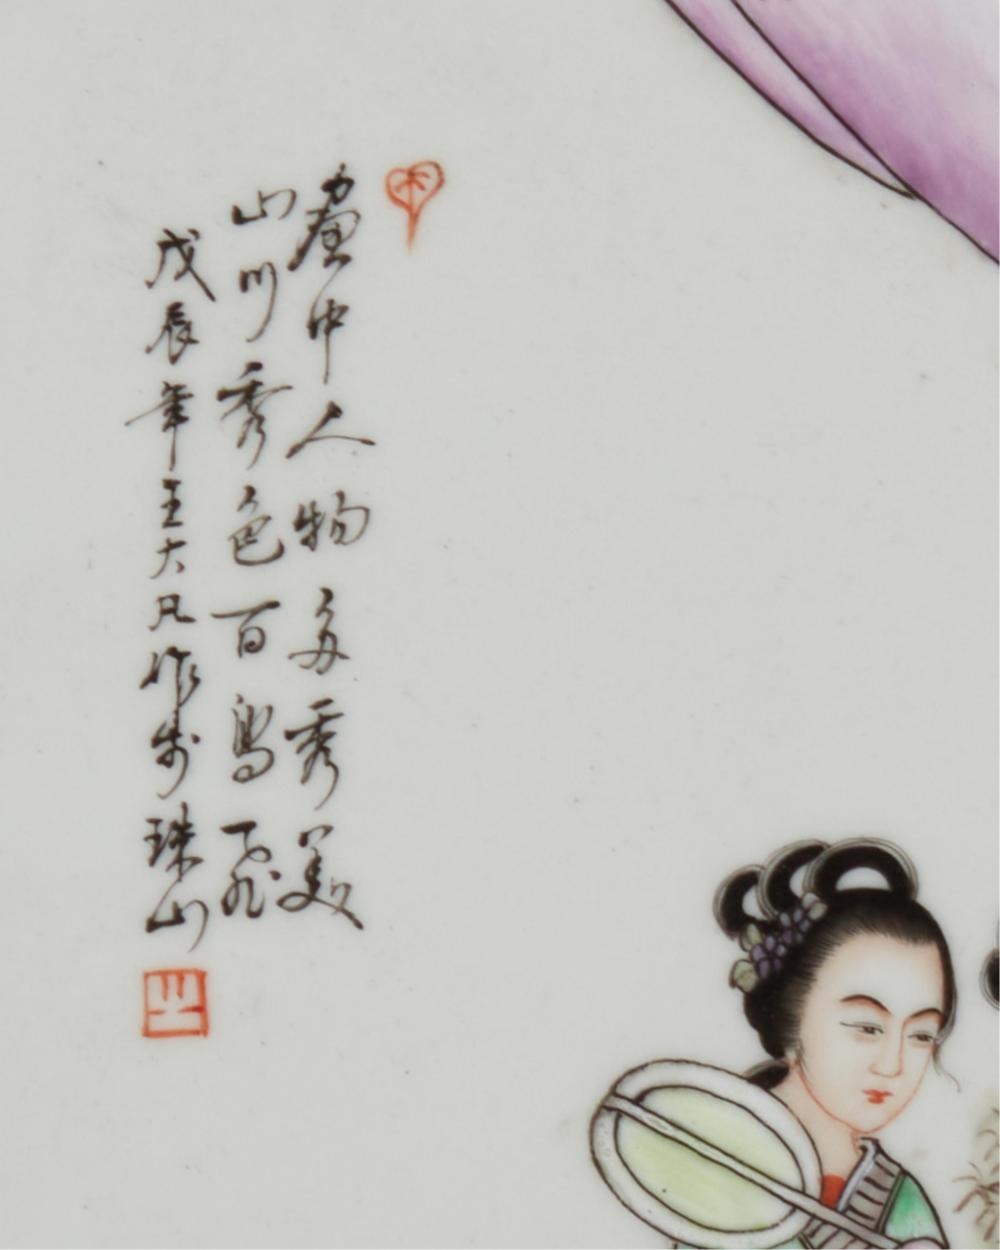 畫中人物多秀美
山川秀色百鳥飛
戊辰年王大凡作於珠山